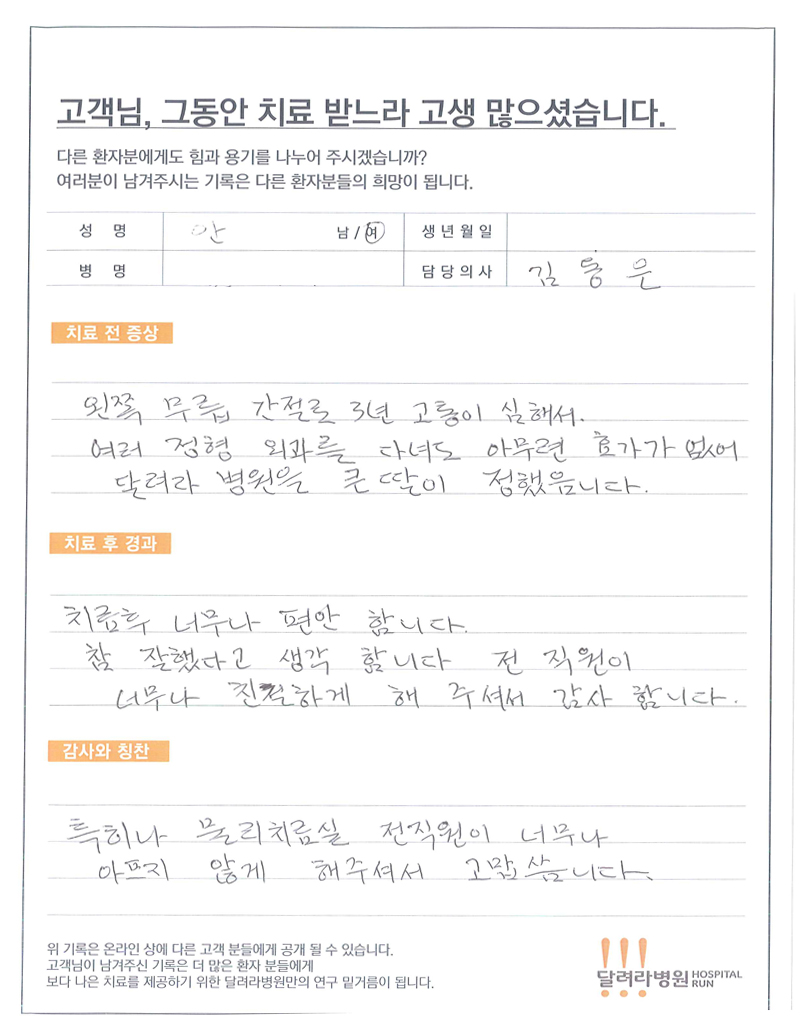 고객님, 그동안 치료 받느라 고생 많으셨습니다.
다른 환자분에게도 힘과 용기를 나누어 주시겠습니까?
여러분이 남겨주시는 기록은 다른 환자분들의 희망이 됩니다.
성 명 안 남 / 여 생년월일
병 명 담당의사 김동은
치료 전 증상
왼쪽 무릅 간절로 3년 고통이 심해서.
여러 정형 외과를 다녀도 아무런 효가가 없어
달려라 병원을 큰 딸이 정했음니다.
치료 후 경과
치료후 너무나 편안 합니다.
참 잘했다고 생각 합니다 전 직원이
너무나 친절하게 해 주셔서 감사 합니다.
감사와 칭찬
특히나 물리치료실 전직원이 너무나
아프지 않게 해주셔서 고맙씀니다.
위 기록은 온라인 상에 다른 고객 분들에게 공개 될 수 있습니다.
고객님이 남겨주신 기록은 더 많은 환자 분들에게
보다 나은 치료를 제공하기 위한 달려라병원만의 연구 밑거름이 됩니다.
!!!
달려라병원 HOSPITAL RUN